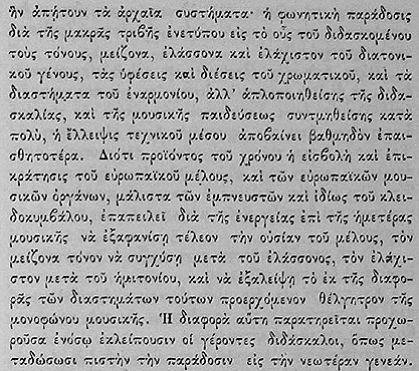 ἣν ἀπῄτουν τὰ ἀρχαῖα συστήματα· ἡ φωνητικὴ παράδοσις
διὰ τῆς μακρᾶς τριβῆς ἐνετύπου εἰς τὸ οὖς τοῦ διδασκομένου
τοὺς τόνους, μείζονα, ἐλάσσονα καὶ ἐλάχιστον τοῦ διατονι-
κοῦ γένους, τὰς ὑφέσεις καὶ διέσεις τοῦ χρωματικοῦ, καὶ τὰ
διαστήματα τοῦ ἐναρμονίου, ἀλλ' ἁπλοποιηθείσης τῆς διδα-
σκαλίας, καὶ τῆς μουσικῆς παιδεύσεως συντμηθείσης κατὰ
πολὺ, ἡ ἔλλειψις τεχνικοῦ μέσου ἀποβαίνει βαθμηδὸν ἐπαι-
σθητοτέρα. Διότι προϊόντος τοῦ χρόνου ἡ εἰσβολὴ καὶ ἐπι-
κράτησις τοῦ εὐρωπαϊκοῦ μέλους, καὶ τῶν εὐρωπαϊκῶν μου-
σικῶν ὀργάνων, μάλιστα τῶν ἐμπνευστῶν καὶ ἰδίως τοῦ κλει-
δοκυμβάλου, ἐπαπειλεῖ διὰ τῆς ἐνεργείας ἐπὶ τῆς ἡμετέρας
μουσικῆς νὰ ἐξαφανίσῃ τέλεον τὴν οὐσίαν τοῦ μέλους, τὸν
μείζονα τόνον νὰ συγχύσῃ μετὰ τοῦ ἐλάσσονος, τὸν ἐλάχι-
στον μετὰ τοῦ ἡμιτονίου, καὶ νὰ ἐξαλείψῃ τὸ ἐκ τῆς διαφο-
ρᾶς τῶν διαστημάτων τούτων προερχόμενον θέλγητρον τῆς
μονοφώνου μουσικῆς. Ἡ διαφορὰ αὕτη παρατηρεῖται προχω-
ροῦσα ἐνόσῳ ἐκλείπουσιν οἱ γέροντες διδάσκαλοι, ὅπως με-
ταδώσωσι πιστὴν τὴν παράδοσιν εἰς τὴν νεωτέραν γενεάν.